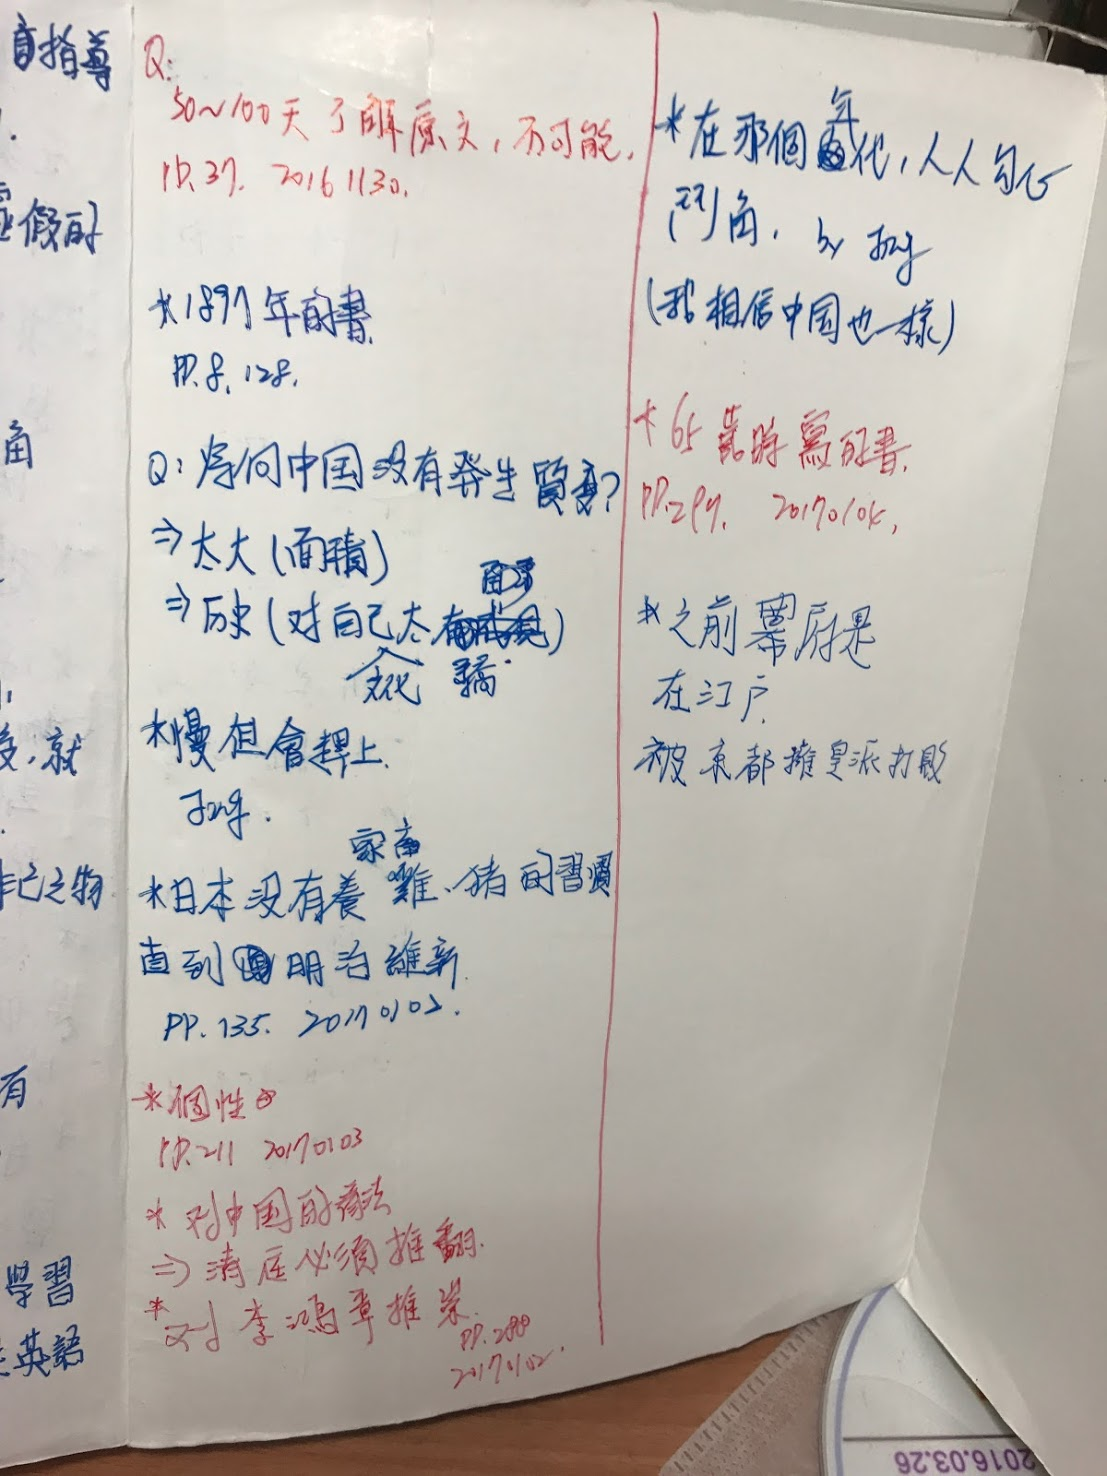 指導
假的
角
就
己之物
有
學習
英語
Q:
50~100天了解原文,不可能.
PP.37. 20161130.
*1897年的書.
PP.8.128.
Q:為何中国沒有發生質變?
⇒太大(面積)
⇒历史(对自己太
文化 驕
*慢但會趕上.
家畜
*日本沒有養雞、豬的習慣
直到明治維新.
PP.135. 20170102.
*個性
PP.211 20170103
*对中国的看法
⇒清廷必須推翻.
*对李鴻章推崇.
PP.288
20170102.
年
*在那個代,人人勾心
鬥角. by
(我相信中国也一樣)
*65歲時寫的書.
PP.299. 20170104.
*之前幕府是
在江戶.
被京都擁皇派打敗
2016.03.26